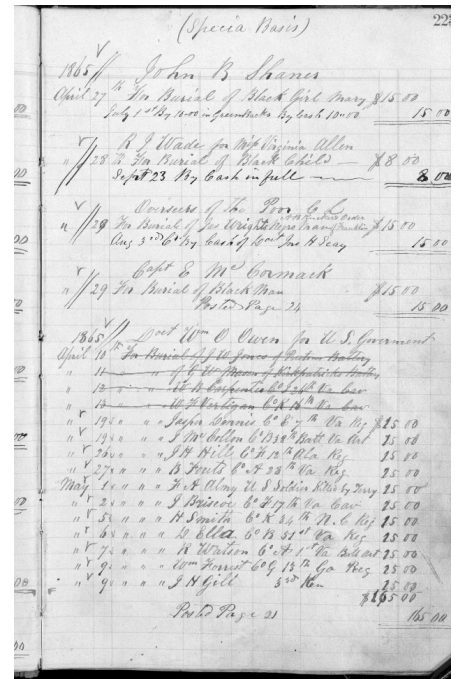 (Specia Basis)
223
1865 John B Shaner
April 27th For Burial of Black Girl Mary $15.00
July 1st By 15.00 in GreenBacks By Cash 10.00 15 00
R J Wade for Miss Virginia Allen
" 28 To For Burial of Black Child — $8.00
Sept 23 By Cash in full — 8 00
Overseers of The Poor C L
" 29 For Burial of Jas Wright Negro $15.00
Aug 3rd Cr By Cash of Jno H Seay 15 00
Capt E McCormack
" 29 For Burial of Black Man $15 00
Posted Page 24 15 00
1865 Doct Wm O Owen for U S Goverment
April 10th For Burial of J W Jones of Battery
" 11 " " of G W Mason of Kirkpatricks Batty
" 12 " " W B Carpenter Co 28th Va Cav
" 13 " " W F Co K 16th Va Cav
" 19 " " " Jasper Co E 7th Va Reg $15 00
" 19 " " " J McCollon Co B 38th Batt Va Art 15 00
" 26 " " " J H Hill Co K 12th Ala Reg 15 00
" 27 " " " B Fouts Co A 28th Va Reg 15 00
May 1 " " " U S Soldier Killed by Terry 15 00
" 2 " " " J Briscoe Co F 17th Va Cav 15 00
" 5 " " " H Smith Co K 34th N.C Reg 15 00
" 6 " " " Ella Co B 51st Va Reg 15 00
" 7 " " " R Watson Co A 1st Va Batt Art 15 00
" 9 " " " Wm Forrist Co G 13th Ga Reg 15 00
" 9 " " " J H Gill 3rd 15 00
$165 00
Posted Page 21 165 00